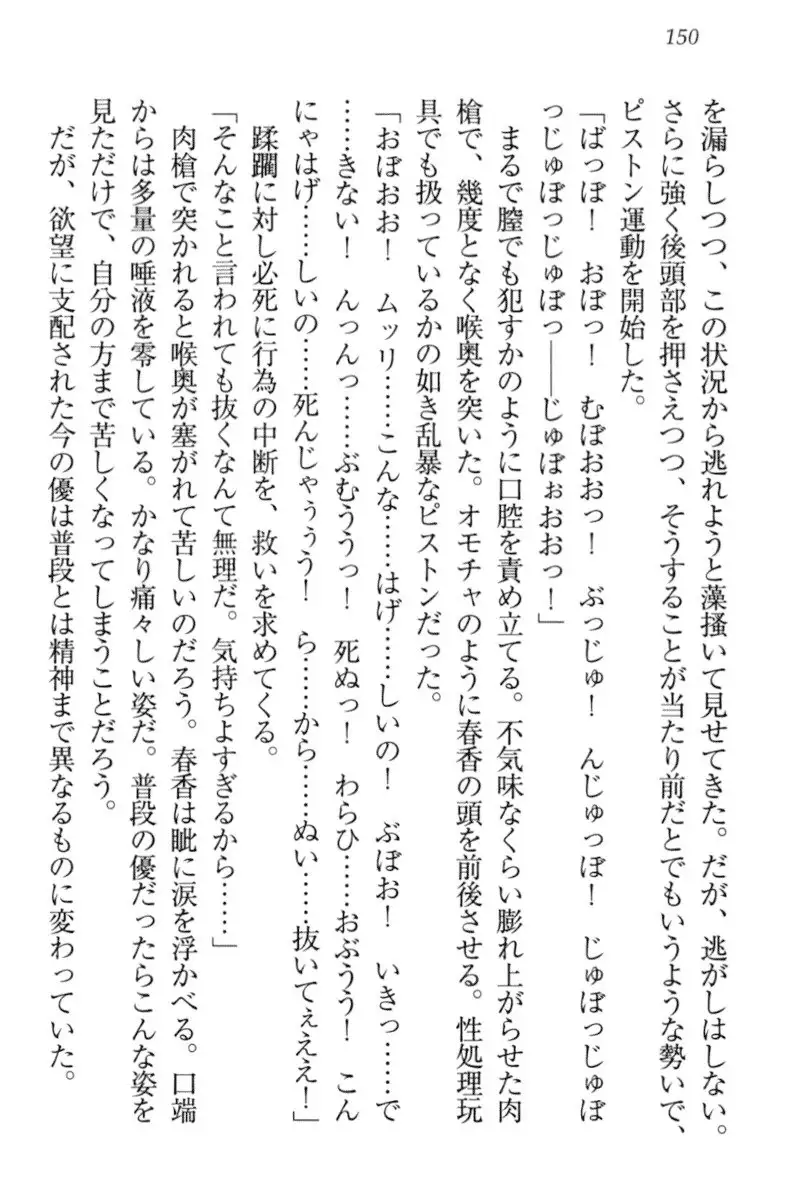 150
を漏らしつつ、この状況から逃れようと藻掻いて見せてきた。だが、逃がしはしない。
さらに強く後頭部を押さえつつ、そうすることが当たり前だとでもいうような勢いで、
ピストン運動を開始した。
「ばっぽ！　おぼっ！　むぼおおっ！　ぶっじゅ！　んじゅっぽ！　じゅぼっじゅぼ
っじゅぼっじゅぼっ――じゅぼぉおおっ！」
まるで膣でも犯すかのように口腔を責め立てる。不気味なくらい膨れ上がらせた肉
槍で、幾度となく喉奥を突いた。オモチャのように春香の頭を前後させる。性処理玩
具でも扱っているかの如き乱暴なピストンだった。
「おぼおお！　ムッリ……こんな……はげ……しいの！　ぶぼお！　いきっ……で
……きない！　んっんっ……ぶむううっ！　死ぬっ！　わらひ……おぶうう！　こん
にゃはげ……しいの……死んじゃぅぅう！　ら……から……ぬい……抜いてぇええ！」
蹂躙に対し必死に行為の中断を、救いを求めてくる。
「そんなこと言われても抜くなんて無理だ。気持ちよすぎるから……」
肉槍で突かれると喉奥が塞がれて苦しいのだろう。春香は眦に涙を浮かべる。口端
からは多量の唾液を零している。かなり痛々しい姿だ。普段の優だったらこんな姿を
見ただけで、自分の方まで苦しくなってしまうことだろう。
だが、欲望に支配された今の優は普段とは精神まで異なるものに変わっていた。